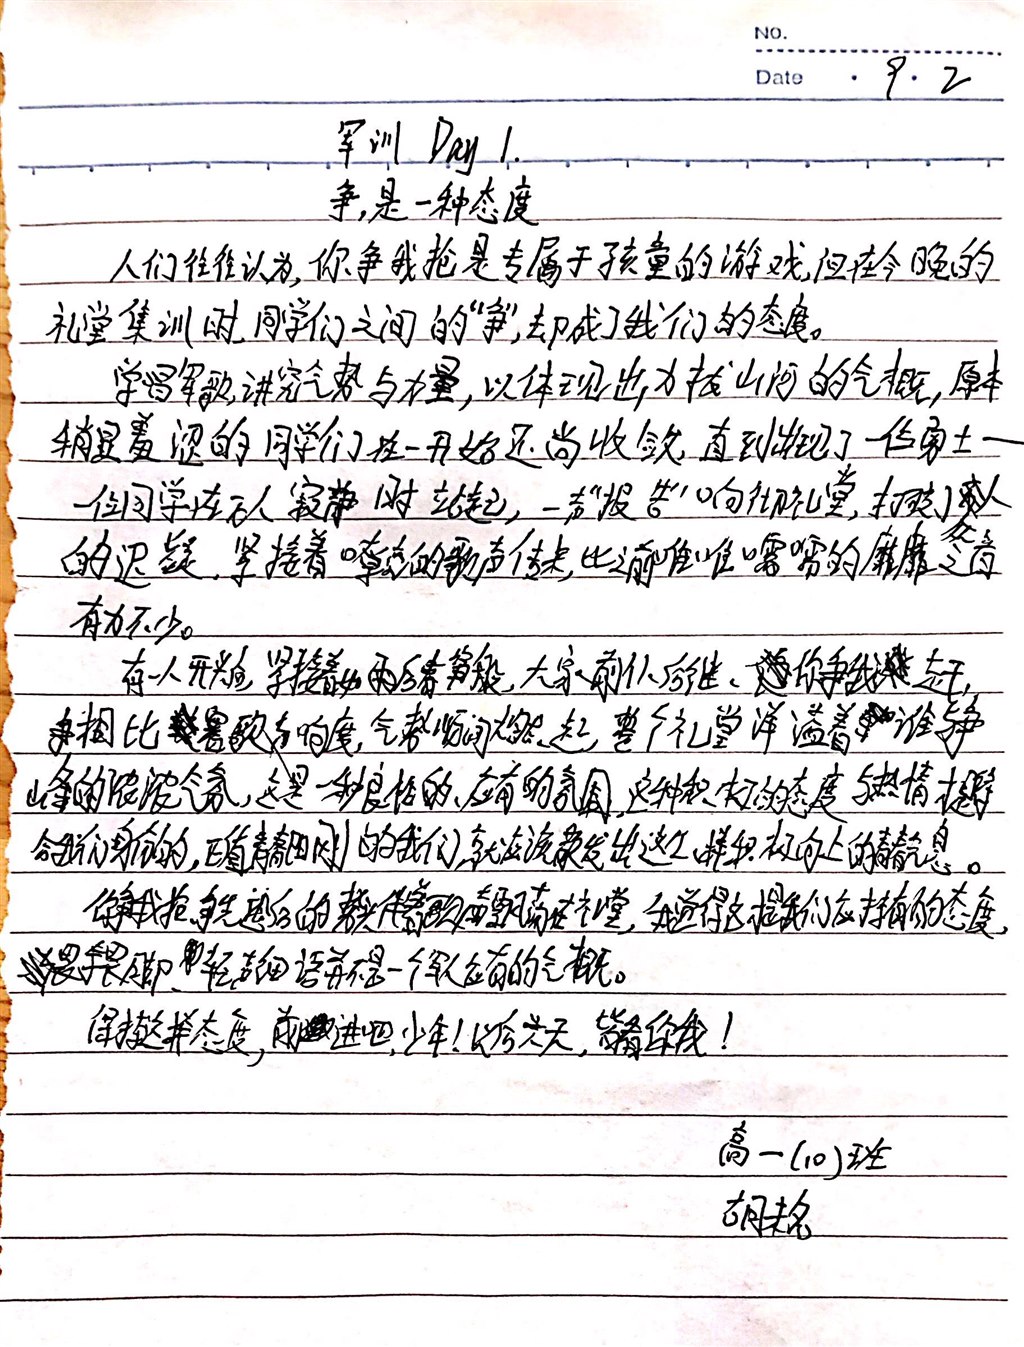 No.
Date · 9 · 2
军训 Day 1.
争,是一种态度
人们往往认为,你争我抢是专属于孩童的游戏,但在今晚的
礼堂集训时,同学们之间的“争”,却成了我们的态度。
学唱军歌,讲究气势与力量,以体现出,力拔山河的气概,原本
稍显羞涩的同学们在一开始还尚收敛,直到出现了一位勇士一
一位同学在万人寂静时站起,一声“报告”响彻礼堂,打破了众人
的迟疑,紧接着嘹亮的歌声传来,比之前唯唯喏喏的靡靡之音
有力不少。
有一人开始,紧接着如雨后春笋般,大家前仆后继、你争我赶,
争相比歌声响度,气势瞬间燃起,整个礼堂洋溢着谁争
峰的浓浓气氛,这是一种良性的、应有的氛围,这种积极的态度与热情
我们身前的,正值青春阳刚的我们,就应该散发出这么样积极向上的青春气息。
你争我抢、争先恐后的军歌声飘荡在礼堂,我觉得这是我们应持有的态度,
畏手畏脚、轻声细语并不是一个军人应有的气概。
保持这样态度,前进吧,少年!以后六天,皆看你我!
高一(10)班
胡未名